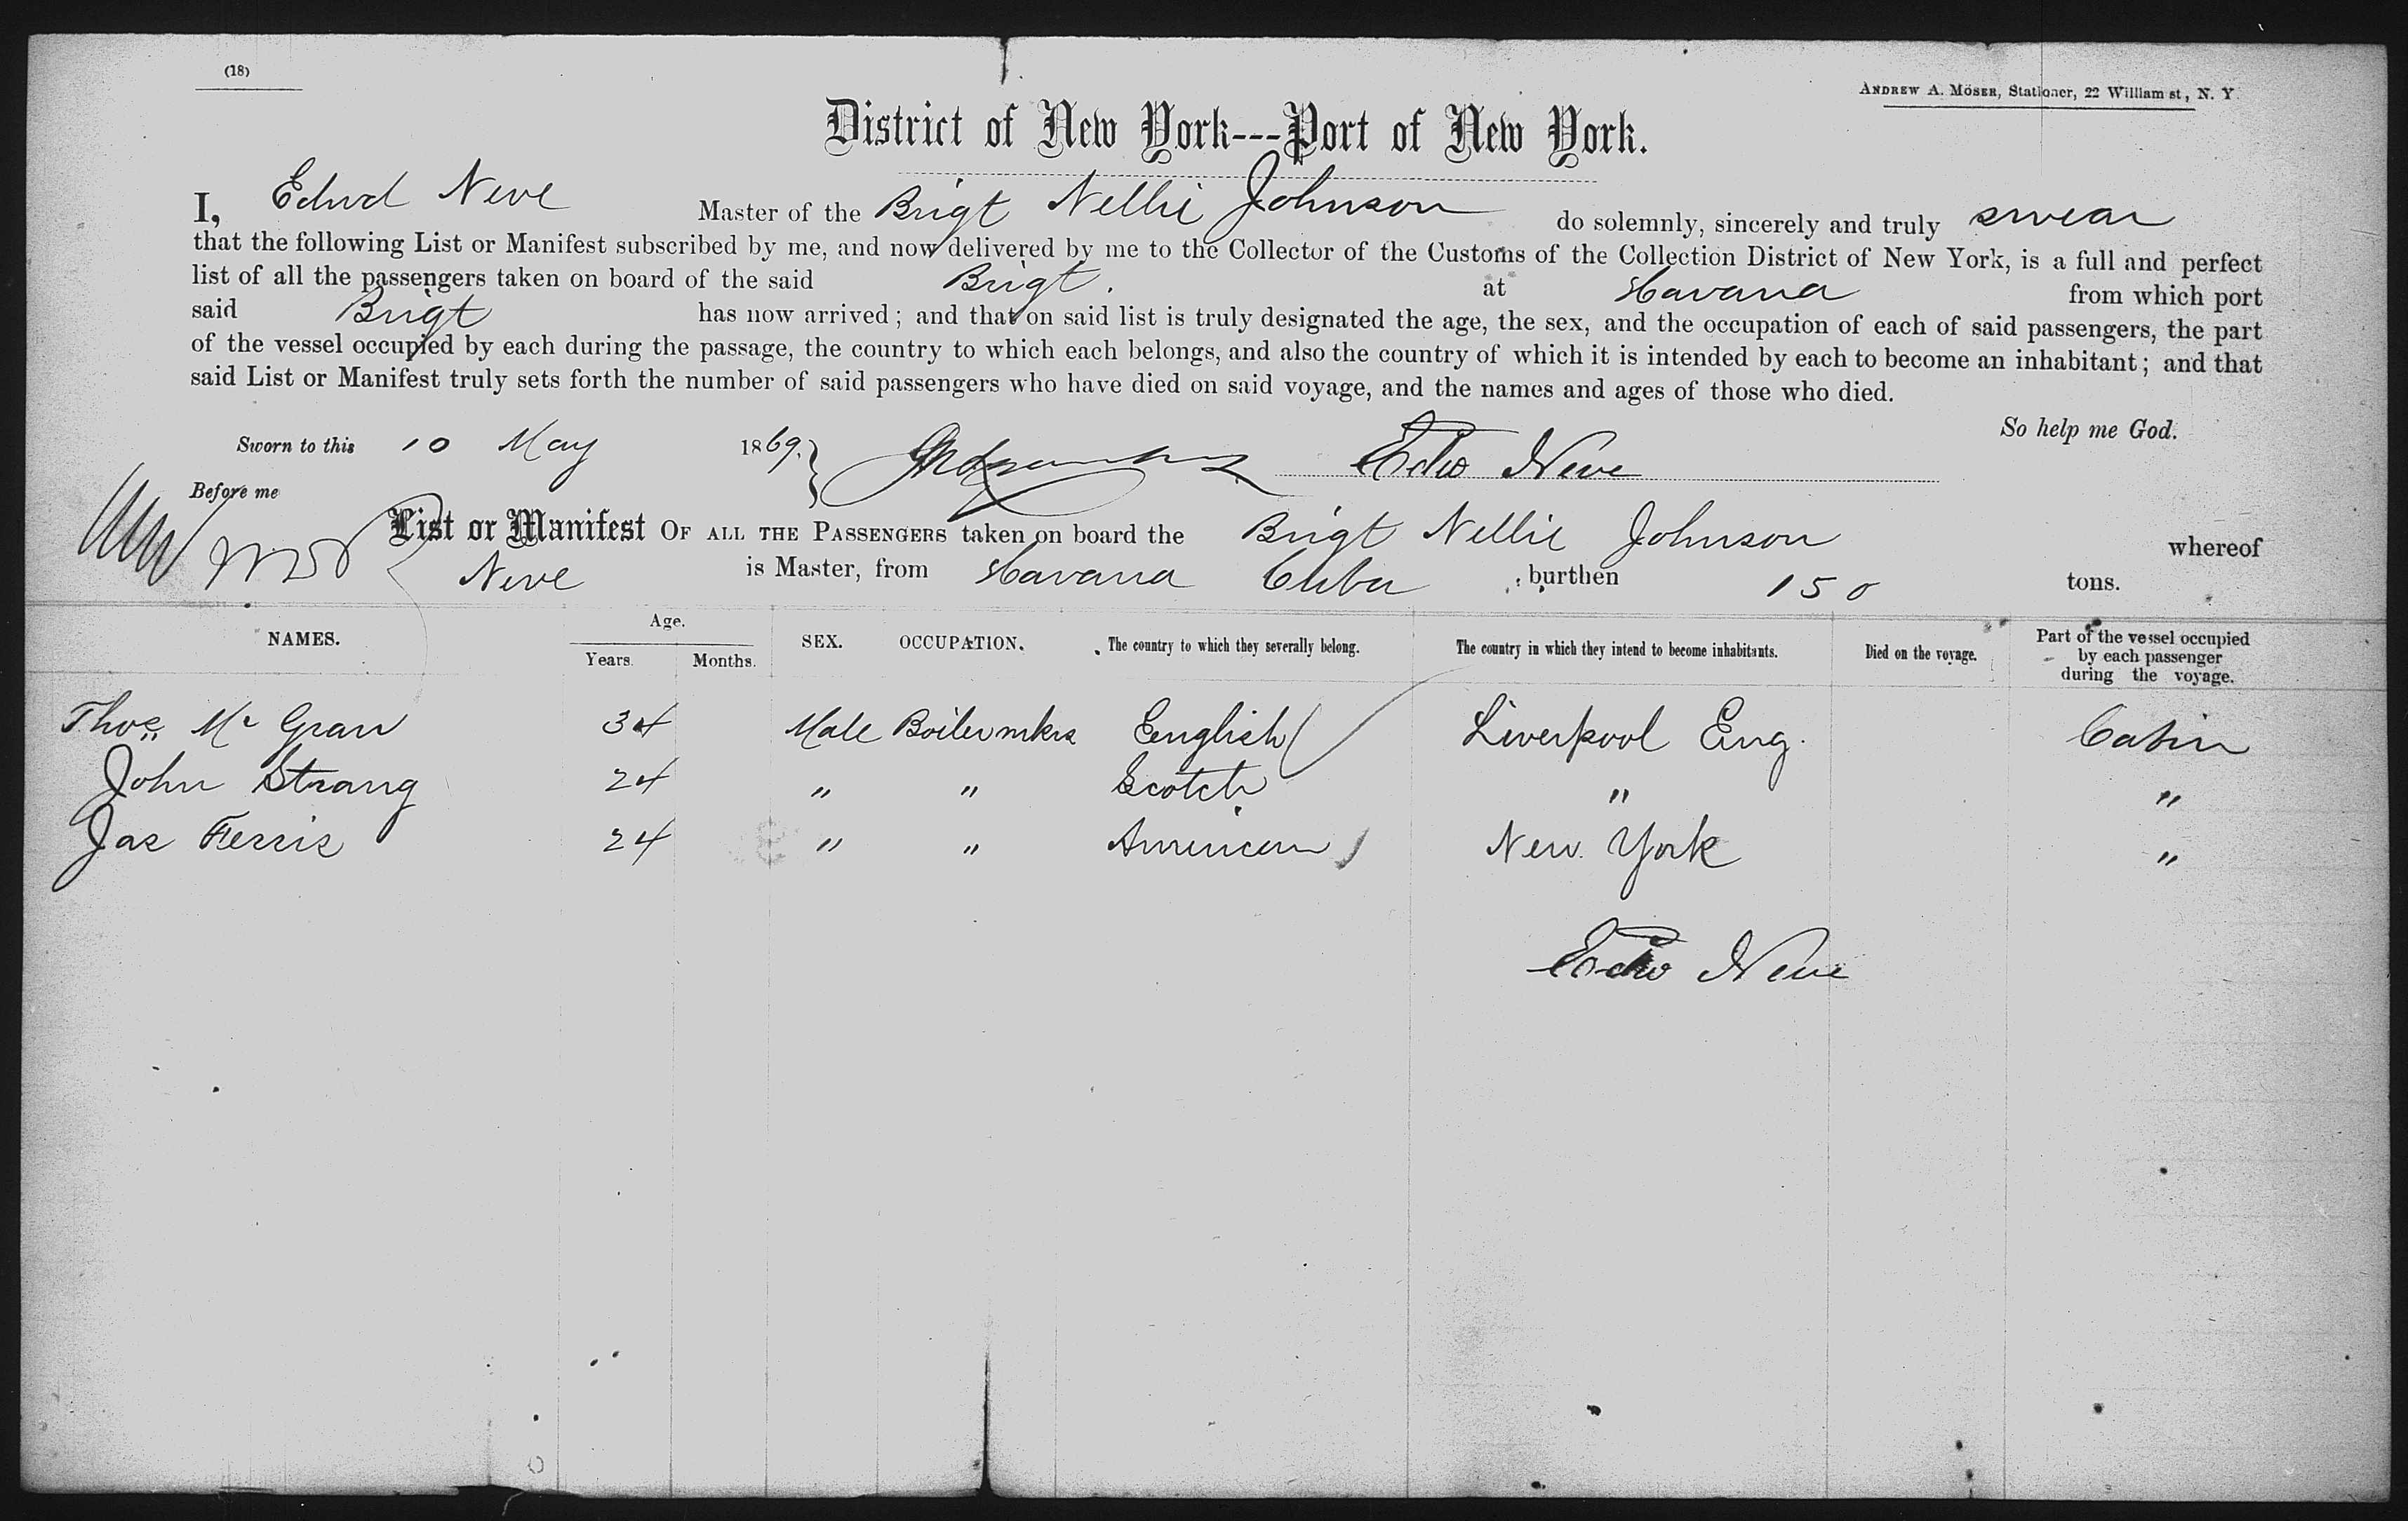 (18)
ANDREW A. MÖSER, Stationer, 22 William st, N. Y.
District of New York---Port of New York.
I, Edwd Neve Master of the Brigt Nellie Johnson do solemnly, sincerely and truly swear
that the following List or Manifest subscribed by me, and now delivered by me to the Collector of the Customs of the Collection District of New York, is a full and perfect
list of all the passengers taken on board of the said Brigt. at Havana from which port
said Brigt has now arrived; and that on said list is truly designated the age, the sex, and the occupation of each of said passengers, the part
of the vessel occupied by each during the passage, the country to which each belongs, and also the country of which it is intended by each to become an inhabitant; and that
said List or Manifest truly sets forth the number of said passengers who have died on said voyage, and the names and ages of those who died.
So help me God.
Sworn to this 10 May 1869. Edw Neve
Before me
List or Manifest OF ALL THE PASSENGERS taken on board the Brigt Nellie Johnson whereof
Neve is Master, from Havana Cuba , burthen 150 tons.
NAMES. Age. Years. Months. SEX. OCCUPATION. The country to which they severally belong. The country in which they intend to become inhabitants. Died on the voyage. Part of the vessel occupied by each passenger during the voyage.
Thos Mc Gran 34 Male Boilermkrs English Liverpool Eng. Cabin
John Strang 24 " " Scotch " "
Jas Ferris 24 " " American New York "
Edw Neve